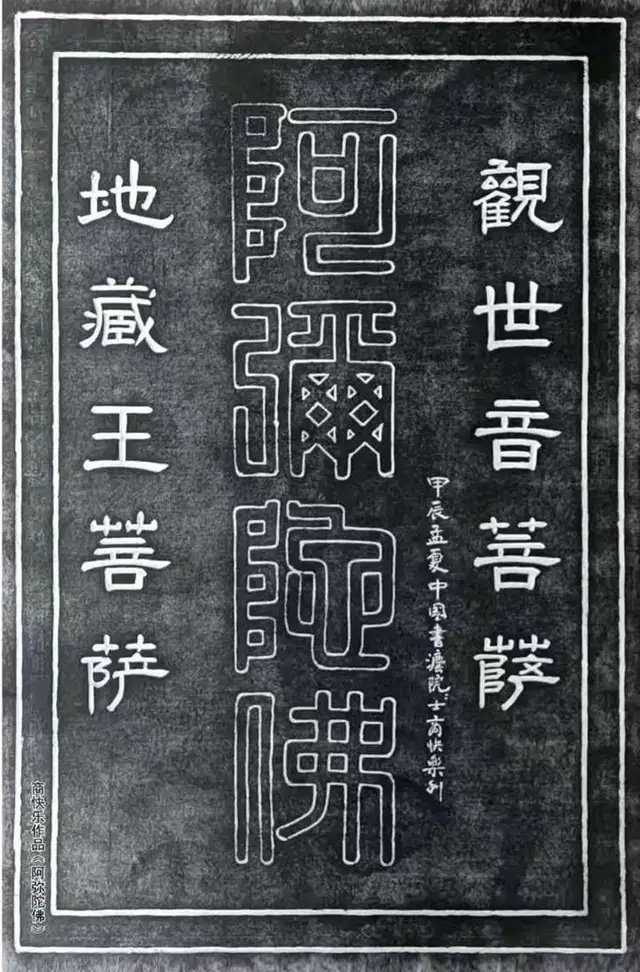 觀世音菩薩
甲辰孟夏中國書灋院〻士商快樂刻
阿彌陀佛
地藏王菩萨
商快乐作品《阿弥陀佛》